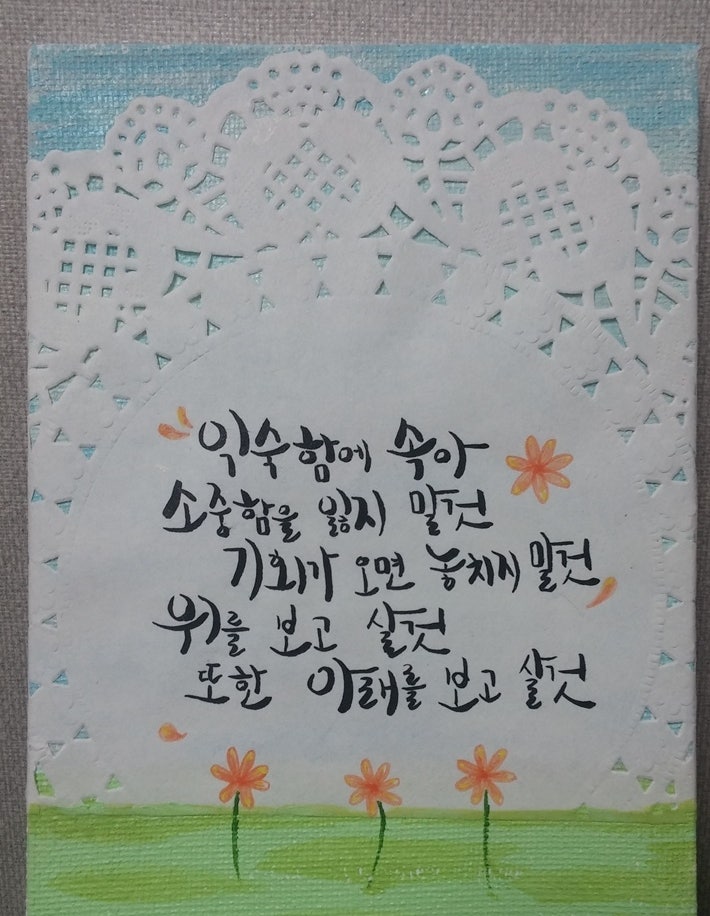 익숙함에 속아
소중함을 잃지 말것
기회가 오면 놓치지 말것
위를 보고 살것
또한 아래를 보고 살것